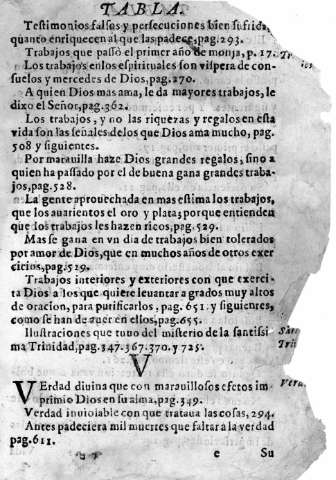 TABLA.
Testimonios falsos y persecuciones bien sufridas,
quanto enriquecen al que las padece, pag. 293.
Trabajos que passò el primer año de monja, p. 17.
Los trabajos en los espirituales son vispera de con-
suelos y mercedes de Dios, pag. 270.
A quien Dios mas ama, le da mayores trabajos, le
dixo el Señor, pag. 362.
Los trabajos, y no las riquezas y regalos en esta
vida son las señales de los que Dios ama mucho, pag.
508 y siguientes.
Por marauilla haze Dios grandes regalos, sino a
quien ha passado por el de buena gana grandes traba-
jos, pag. 528.
La gente aprouechada en mas estima los trabajos,
que los auarientos el oro y plata; porque entienden
que los trabajos les hazen ricos, pag. 529.
Mas se gana en vn dia de trabajos bien tolerados
por amor de Dios, que en muchos años de otros exer
cicios, pag. 529.
Trabajos interiores y exteriores con que exerci-
ta Dios a los que quiere leuantar a grados muy altos
de oracion, para purificarlos, pag. 651. y siguientes,
como se han de auer en ellos, pag. 655.
Ilustraciones que tuuo del misterio de la santissi
ma Trinidad, pag. 347. 367. 370. y 725.
V
VErdad diuina que con marauillosos efetos im-
primio Dios en su alma, pag. 349.
Verdad inuiolable con que trataua las cosas, 294.
Antes padeciera mil muertes que faltar a la verdad
pag. 611.
e Su